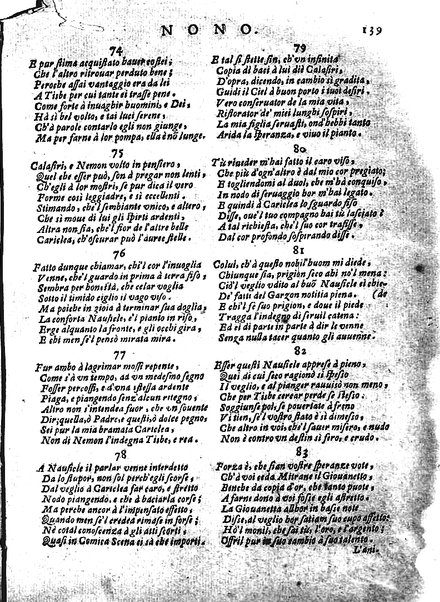 NONO. 139
74
E pur stima acquistato hauer costei;
Che l'altro ritrouar perduto bene;
Peroche assai vantaggio era da lei
A Tisbe per cui tante ei trasse pene.
Come forte à inuaghir huomini, e Dei,
Hà sì bel volto, e tai luci serene,
Ch'à parole contarlo egli non giunge,
Ma per farne à lor pompa, ella è nõ lunge.
75
Calasiri, e Nemon volto in pensiero,
Quel che esser può, son à pregar non lenti,
Ch'egli à lor mostri, se pur dica il vero
Forme così leggiadre, e sì eccellenti.
Stimando, che'l sembiante vnico, e altero,
Che si moue di lui gli spirti ardenti
Altra non sia, che'l fior de l'altre belle
Cariclea, ch'oscurar può l'auree stelle.
76
Fatto dunque chiamar, chi l'cor l'inuoglia
Venne, che'l guardo in prima à terra fiso,
Sembra per bonestà, che celar voglia
Sotto il timido ciglio il vago viso.
Ma poiche in gioia à terminar sua doglia,
La conforta Nausicle, e'l pianto in riso,
Erge alquanto la fronte, e gli occhi gira,
E chi men se'l pensò mirata mira.
77
Fur ambo à lagrimar mossi repente,
Come s'à un tempo, ad un medesmo segno
Fosser percossi, e d'vna istessa ardente
Piaga, e piangendo senz'alcun ritegno,
Altro non s'intendea fuor, che un souente
Dir; quella, ò Padre: e questi; ò dolce pegno,
Sei pur la mia bramata Cariclea,
Non di Nemon l'indegna Tisbe, e rea.
78
A Nausicle il parlar venne interdetto
Da lo stupor, non sol perch'egli scorse,
Dal veglio à Cariclea far caro, e stretto
Nodo piangendo, e ch'à baciarla corse;
Ma perche ancor à l'impensato effetto,
Quando men se'l credea rimase in forse;
Nè cotal conoscenza à gli atti scorti,
Quasi in Comica Scena ei sà che importi.
79
E tal si stette fin, ch'vn infinita
Copia di baci à lui diè Calasiri,
D'opra, dicendo, in cambio sì gradita,
Guidi il Ciel à buon porto i tuoi desiri.
Vero conseruator de la mia vita,
Ristorator de' miei lunghi sospiri
La mia figlia seruasti, ond'hebbi tanto
Arida la speranza, e viuo il pianto.
80
Tù riueder m'hai fatto il caro viso,
Che più d'ogn'altro è dal mio cor pregiato;
E togliendomi al duol, che m'hà conquiso,
In nodo di seruaggio hor m'hai legato.
E quindi à Cariclea lo sguardo fiso
Disse, oue'l tuo compagno hai tù lasciato è
A tal richiesta, che'l suo cor trafisse,
Dal cor profondo sospirando disse.
81
Colui, ch'à questo nobil'huom mi diede,
Chiunque sia, prigion seco ahi no'l mena:
Ciò'l veglio vdito al buõ Nausicle ei chie-
De' fatti del Garzon notitia piena. (de
E ch'ei sè fù suo prigione, e doue il piede
Tragga l'indegno di seruil catena:
Ed ei di parte in parte à dir le venne
Senza nulla tacer quanto gli auuenne.
82
Esser questi Nausicle apprese à pieno,
Quei di cui seco ragionò sì spesso
Il veglio, e al pianger rauuisò non meno,
Che per Tisbe cerear perde se stesso.
Soggiunse poi, se pouertate à freno
Vi tien, se'l vostro stato è in dimesso,
Che altro in voi, che'l sauer misero, e nudo
Non è contro vn destin sì fero, e crudo.
83
Forza è, che sian vostre speranze vote,
Ch'à voi ceda Mitrane il Giouanetto,
Benche da copia d'or, che tanto puote,
A farne dono à voi fosse egli astretto.
La Giouanetta allhor in basse note
Disse, al veglio hor satiam suo cupo affetto:
Hò'l monil, che sai tù, l'oro, e l'argento;
Offril pur in suo cambio à suo talento.
L'ani-